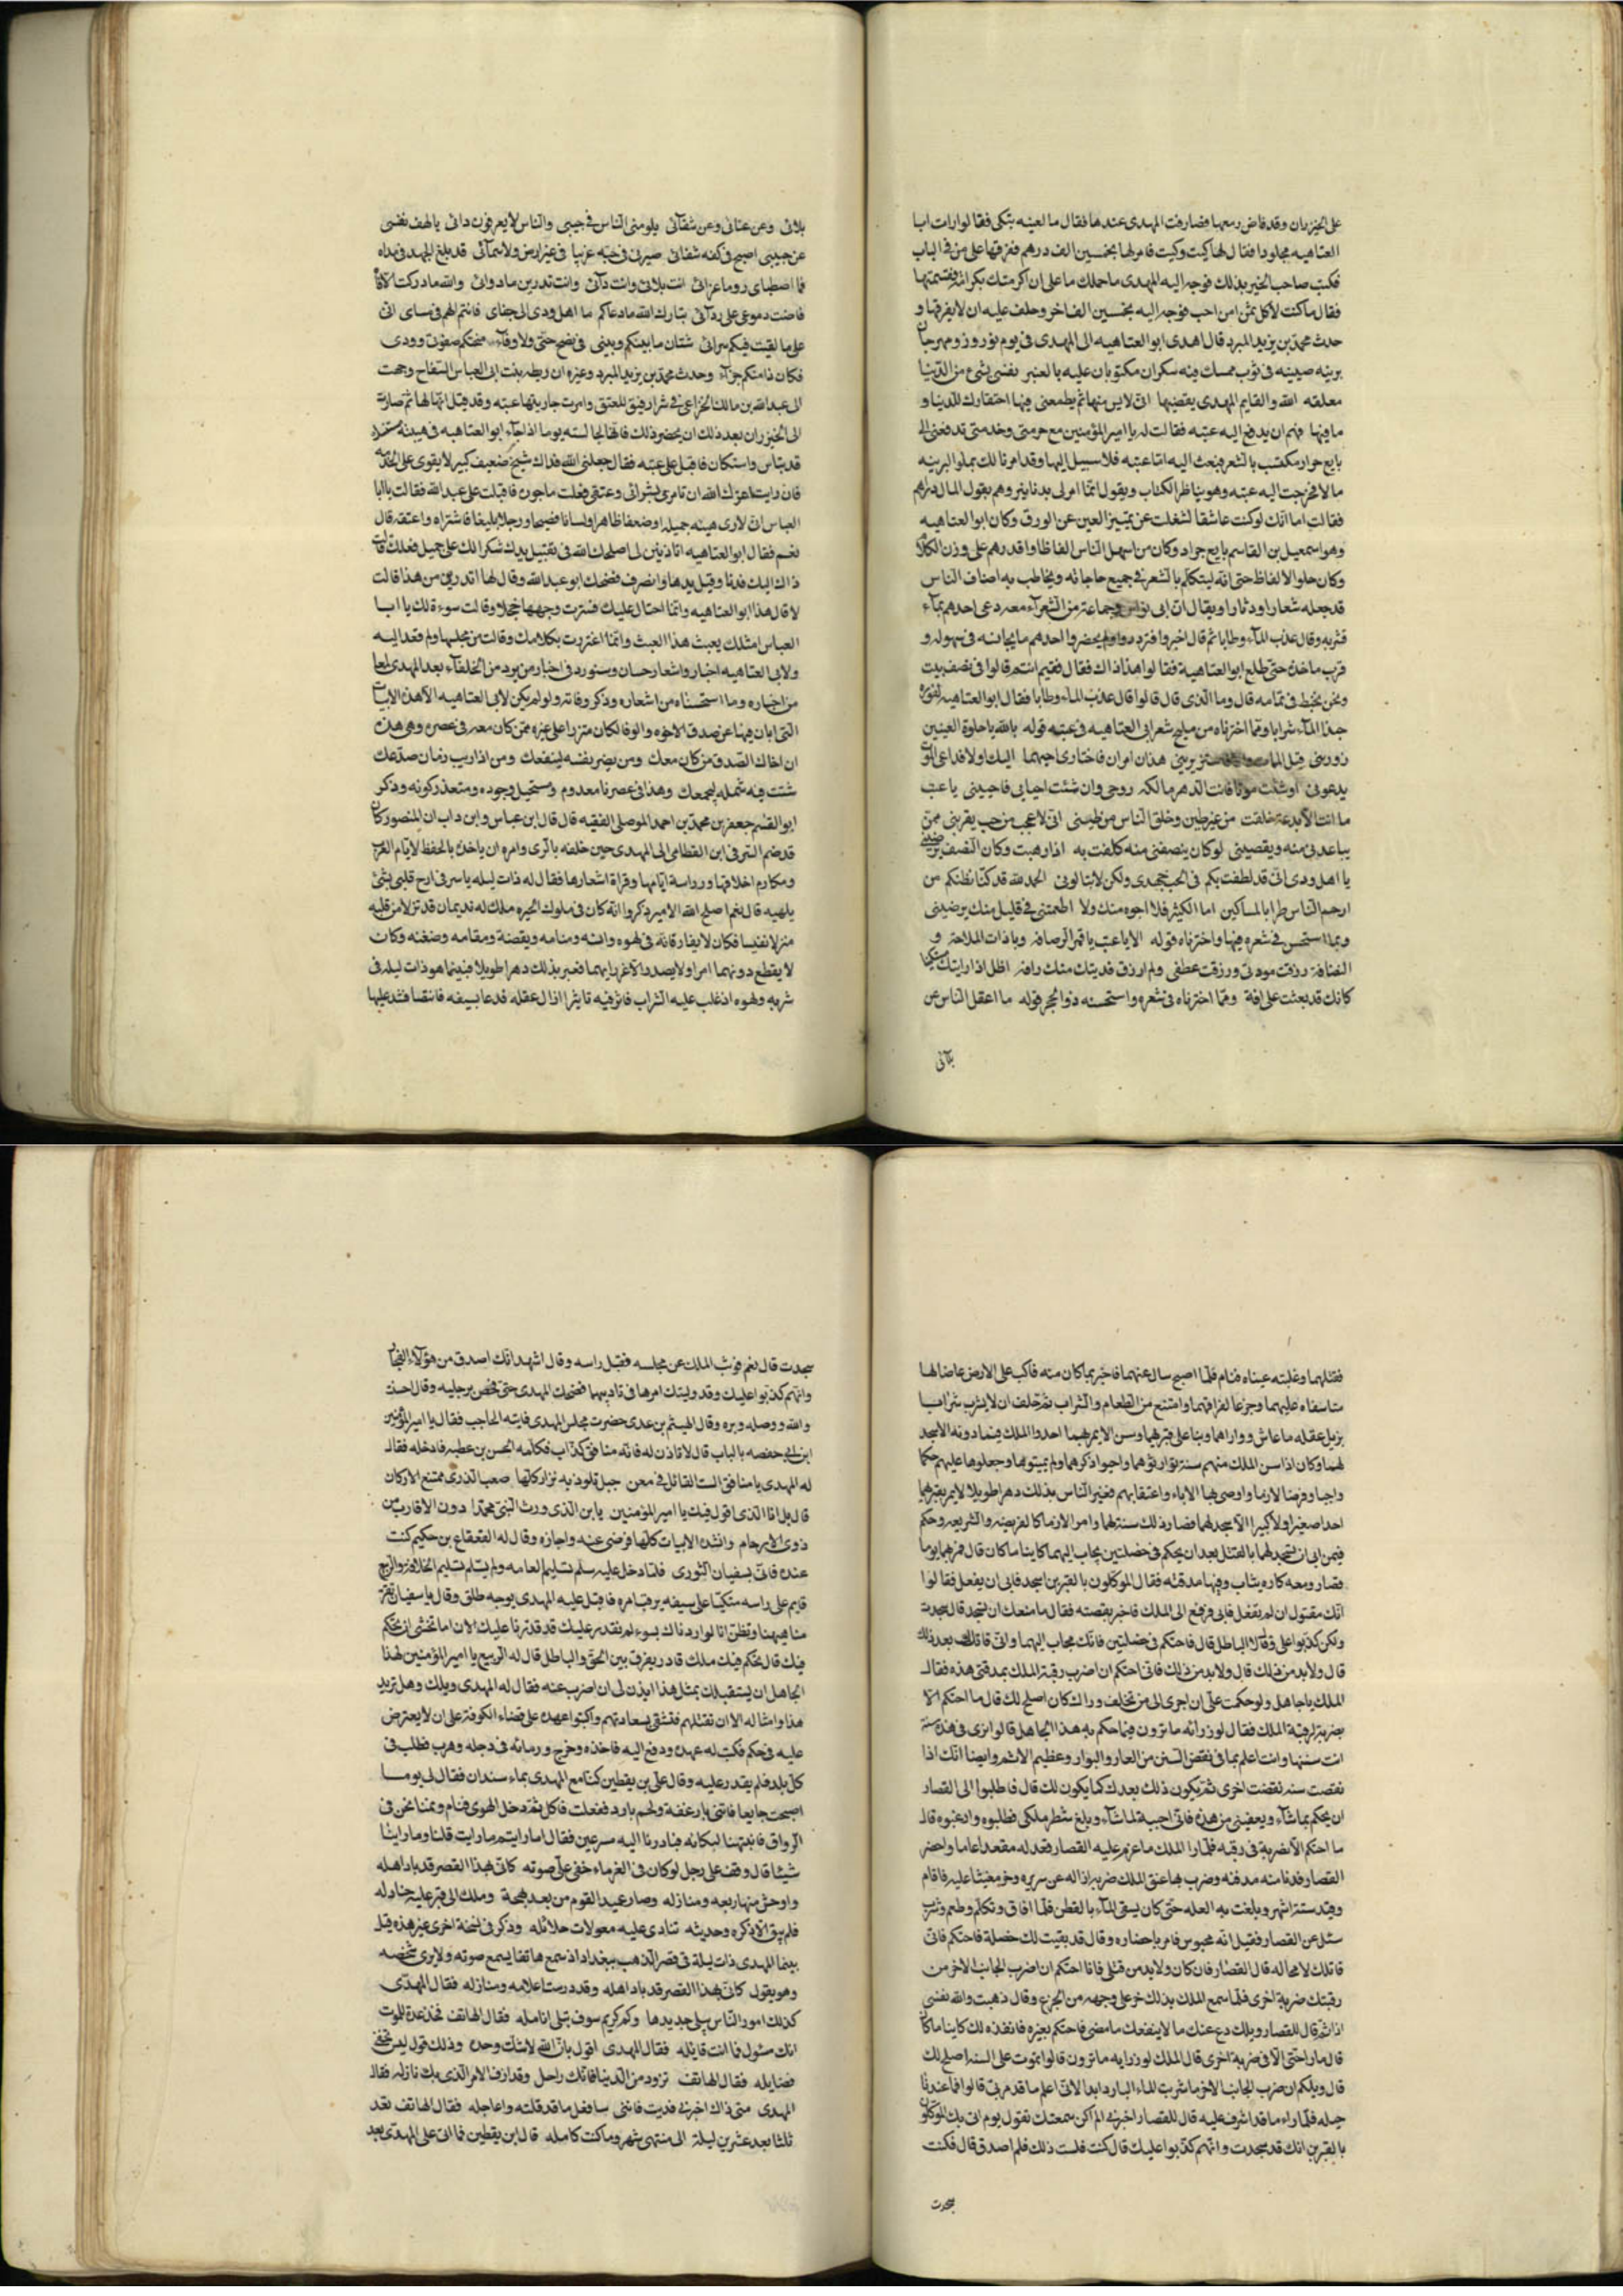 على الخيزران وقد فاض دمعها فصارفت المهدى عندها فقال ما لعتبه تبكى فقالوا رات ابا
العتاهيه مجلودا فقال لها كيت وكيت فامر لها بخمسين الف درهم ففرقها على من فى الباب
فكتب صاحب الخبر بذلك فوجه اليه المهدى ما حملك ما على ان اكرمتك بكرامة فقسمتها
فقال ما كنت لاكل ثمن من احب فوجه اليه بخمسين الف اخر وحلف عليه ان لا يفرقها و
حدث محمد بن يزيد المبرد قال اهدى ابو العتاهيه الى المهدى فى يوم نوروز ومهرجان
برنيه صينيه فى ثوب ممسك فيه سطران مكتوبان عليه بالعنبر نفسى بشئ من الدنيا
معلقه الله والقايم المهدى يقضيها انى لايس منها ثم يطمعنى فيها احتقارك للدنيا و
ما فيها فهم ان يدفع اليه عتبه فقالت له يا امير المؤمنين مع حرمتى وخدمتى تدفعنى الى
بايع جرار مكتسب بالشعر فبعث اليه اما عتبه فلا سبيل اليها وقد امرنا لك بملو البرنيه
مالا فخرجت اليه عتبه وهو يناظر الكتاب ويقول انما امر لى بدنانير وهم يقول المال دراهم
فقالت اما انك لو كنت عاشقا لشغلت عن تمييز العين عن الورق وكان ابو العتاهيه
وهو اسمعيل بن القاسم بايع جرار وكان من اسهل الناس الفاظا واقدرهم على وزن الكلام
وكان حلو الالفاظ حتى انه ليتكلم بالشعر فى جميع حاجاته ويخاطب به اصناف الناس
قد جعله شعارا ودثارا ويقال ان ابى نواس وجماعة من الشعرآء معه دعى احدهم بمآء
فشربه وقال عذب المآء وطابا ثم قال اجيزوا فترددوا ولم يحضروا احدهم ما يجانسه فى سهوله و
قرب ماخذه حتى طلع ابو العتاهية فقالوا هذا ذاك فقال فقيم انتم قالوا فى نصف بيت
ونحن نخبط فى تمامه قال وما الذى قال قالوا قال عذب المآء وطابا فقال ابو العتاهيه لفوره
حبذا المآء شرابا ومما اخترناه من مليح شعر ابى العتاهيه فى عتبه قوله بالله يا حلوة العينين
زورينى قبل الممات والا فاستزيرينى هذان امران فاختارى احبهما اليك او لا فداعى الموت
يدعونى ان شئت موتا فانت الدهر مالكه روحى وان شئت احيايى فاحيينى يا عتب
ما انت الا بدعة خلقت من غير طين وخلق الناس من طينى انى لا عجب من حب يقربنى ممن
يباعدنى منه ويقصينى لو كان ينصفنى منه كلفت به اذا رهبت وكان النصف يرضينى
يا اهل ودى انى قد لطفت بكم فى الحب جهدى ولكن لا تبالونى الحمد لله قد كنا نظنكم من
ارحم الناس طرا بالمساكين اما الكثير فلا ارجوه منك ولا اطمعتنى فى قليل منك يرضينى
ومما استحسن فى شعره فيها واخترناه قوله الا يا عتب يا قمر الرصافه ويا ذات الملاحة و
النضافة رزقت مودتى ورزقت عطفى ولم ارزق فديتك منك رافه اظل اذا رايتك مستكينا
كانك قد بعثت على افة ومما اخترناه فى شعره واستحسنه ذو الحجر قوله ما اعقل الناس عن
بلآئى
بلائى وعن عنائى وعن شقآئى يلومنى الناس فى حبيبى والناس لا يعرفون دائى يا لهف نفسى
عن حبيبى اصبح فى كفه شفائى صيرنى فى حبه غريبا فى غير ارض ولا سمآئى قد بلغ الجهد فى مداه
فما اصطبارى وما عزائى انت بلائى وانت دآئى وانت تدرين ما دوائى والله ما ذكرت الا
فاضت دموعى على ردآئى تبارك الله ما دعاكم ما اهل ودى الى جفاى فانتم لهم فى مساى انى
على ما لقيت فيكم سرائى شتان ما بينكم وبينى فى نصح حتى ولا وفآء منحتكم صفوتى وودى
فكان ذا منكم جزآء وحدث محمد بن يزيد المبرد وغيره ان ريطه بنت ابى العباس السفاح وجهت
الى عبد الله بن مالك الخزاعى فى شرا رقيق للعتق وامرت جاريتها عتبه وقد قيل انها لها ثم صارت
الى الخيزران بعد ذلك ان يحضر ذلك فانها لجالسته يوما اذ اجآء ابو العتاهيه فى هيئة متنسك
قد بتاس واستكان فاقبل على عتبه فقال جعلنى الله فداك شيخ ضعيف كبير لا يقوى على الخدمه
فان رايت اعزك الله ان تامرى بشرائى وعتقى فعلت ماجورة فاقبلت على عبد الله فقالت يا ابا
العباس انى لارى هيئه جميله وضعفا ظاهرا ولسانا فصيحا ورجلا بليغا فاشتراه واعتقه قال
نعم فقال ابو العتاهيه اتاذنين لى اصلحك الله فى تقبيل يدك شكرا لك على جميل فعلك قالت
ذاك اليك فدنا وقبل يدها وانصرف فضحك ابو عبد الله وقال لها اتدرين من هذا قالت
لا قال هذا ابو العتاهيه وانما احتال عليك فسترت وجهها خجلا وقالت سوءة لك يا ابا
العباس امثلك يعبث هذا العبث وانما اغتررت بكلامك وقالت من مجلسها ولم تعد اليه
ولابى العتاهيه اخبار واشعار حسان وسنورد فى اخبار من يرد من الخلفآء بعد المهدى لمعا
من اخباره وما استحسناه من اشعاره وذكر وفاته ولو لم يكن لابى العتاهيه الا هذه الابيات
التى ابان فيها عن صدق الاخوه والوفا لكان متزرا على غيره ممن كان معه فى عصره وهى هذه
ان اخاك الصدق من كان معك ومن يضر نفسه لينفعك ومن اذا ريب زمان صدعك
شتت فيه شمله ليجمعك وهذا فى عصرنا معدوم ومستحيل وجوده ومتعذر كونه وذكر
ابو القسم جعفر بن محمد بن احمد الموصلى الفقيه قال قال ابن عباس وابن داب ان المنصور كان
قد ضم الشرقى ابن القطامى الى المهدى حين خلفه بالرى وامره ان ياخذه بالحفظ لايام العرب
ومكارم اخلاقها ودراسة ايامها وقراة اشعارها فقال له ذات ليله ياشرقى ارح قلبى بشئ
يلهيه قال نعم اصلح الله الامير ذكروا انه كان فى ملوك الحيره ملك له نديمان قد نزلا من قلبه
منزلا نفيسا فكان لا يفارقانه فى لهوه وانسه ومنامه ويقضة ومقامه وضعنه وكان
لا يقطع دونهما امرا ولا يصدر الا عن رايهما فغبر بذلك دهرا طويلا فبينما هو ذات ليله فى
شربه ولهوه اذ غلب عليه الشراب فاثر فيه تاثيرا ازال عقله فدعا بسيفه فانتضا فشد عليها
فقتلهما وغلبته عيناه فنام فلما اصبح سال عنهما فاخبر بما كان منه فاكب على الارض عاضا لها
متاسفا عليهما وجزعا لفراقهما وامتنع من الطعام والشراب ثم حلف ان لا يشرب شرابا
يزيل عقله ما عاش وواراهما وبنا على قبرهما وسن الا يمر بهما احدوا الملك فمادونه الا سجد
لهما وكان اذا سن الملك منهم سنة توارثوها واحيوا ذكرها ولم يميتوها وجعلوها عليهم حكما
واجبا وفرضا لازما واوصى بها الاباء واعقابهم فغبر الناس بذلك دهرا طويلا لا يمر بقبرهما
احد صغيرا ولا كبيرا الا سجد لهما فصار ذلك سنة لهما وامر الازما كالفريضه والشريعه وحكم
فيمن ابى ان يسجد لهما بالقتل بعد ان يحكم فى خصلتين يجاب اليهما كاينا ما كان قال فمر بهما يوما
قصار ومعه كاره ثياب وفيها مدقته فقال الموكلون بالقبرين اسجد فابى ان يفعل فقالوا
انك مقتول ان لم تفعل فابى فرفع الى الملك فاخبر بقصته فقال ما منعك ان تسجد قال سجدت
ولكن كذبوا على فقال الباطل قال فاحتكم فى خصلتين فانك مجاب اليهما وانى قاتلك بعد ذلك
قال ولا بد من ذلك قال ولا بد من ذلك قال فانى احتكم ان اضرب رقبة الملك بمدقتى هذه فقال
الملك يا جاهل ولو حكمت على ان اجرى الى من تخلف وراك كان اصلح لك قال ما احتكم الا
بضربة لرقبة الملك فقال لوزرائه ما ترون فيما حكم به هذا الجاهل قالوا نرى فى هذه سنة
انت سننتها وانت اعلم بما فى نقض السنن من العار والبوار وعظيم الاثم وايضا انك اذا
نقضت سنة نقضت اخرى ثم يكون ذلك بعدك كما يكون لك قال فاطلبوا الى القصار
ان يحكم بما شآء ويعفينى من هذه فانى اجيبه لما شآء ويبلغ شطر ملكى فطلبوه وادعبوه قال
ما احتكم الا بضربة فى رقبه فلما را الملك ما عزم عليه القصار قعد له مقعدا عاما واحضر
القصار فدنا منه مدقته وضرب بها عنق الملك ضربة ازاله عن سريره وخر مغشيا عليه فاقام
وقيد ستة اشهر وبلغت به العله حتى كان يسقى المآء بالقطن فلما افاق وتكلم وطعم وشرب
سئل عن القصار فقيل انه محبوس فامر باحضاره وقال قد بقيت لك خصلة فاحتكم فانى
قاتلك لا محاله قال القصار فان كان ولا بد من قتلى فانا احتكم ان اضرب الجانب الاخر من
رقبتك ضربة اخرى فلما سمع الملك بذلك خر على وجهه من الجزع وقال ذهبت والله نفسى
اذا ثم قال للقصار ويلك دع عنك ما لا ينفعك ما مضى فاحتكم بغيره فانفذه لك كاينا ما كان
قال ما را حقى الا فى ضربة اخرى قال الملك لوزرايه ما ترون قالوا تموت على السنه اصلح لك
قال ويلكم ان ضرب الجانب الاخر ما شربت المآء البارد ابدا لانى اعلم ما قد مر بى قالوا فما عندنا
حيله فلما راء ما قد اشرف عليه قال للقصار اخبرنى الم اكن سمعتك تقول يوم اتى بك الموكلون
بالقبرين انك قد سجدت وانهم كذبوا عليك قال كنت قلت ذلك فلم اصدق قال فكنت
سجدت
سجدت قال نعم فوثب الملك عن مجلسه فقبل راسه وقال اشهد انك اصدق من هؤلآء الفجار
وانهم كذبوا عليك وقد وليتك امرها فى تاديبهما فضحك المهدى حتى فحص برجليه وقال احسنت
والله ووصله وبره وقال الهيثم بن عدى حضرت مجلس المهدى فاته الحاجب فقال يا امير المؤمنين
ابن ابى حفصه بالباب قال لا تاذن له فانه منافق كذاب فكلمه الحسن بن عطيه فادخله فقال
له المهدى يا منافق الست القائل فى معن جبل تلوذ به نزار كلها صعب الذرى ممتنع الاركان
قال بل انا الذى اقول فيك يا امير المؤمنين يابن الذى ورث النبى محمدا دون الاقارب من
ذوى الارحام وانشده الابيات كلها فرضى عنه واجازه وقال له القعقاع بن حكيم كنت
عنده فاتى بسفيان الثورى فلما دخل عليه سلم تسليم العامه ولم يسلم تسليم الخلافة والربيع
قايم على راسه متكيا على سيفه يرقب امره فاقبل عليه المهدى بوجه طلق وقال يا سفيان تفر
منا هيهنا وتظن انا لو اردناك بسوء لم نقدر عليك قد قدرنا عليك الان اما تخشى ان نحكم
فيك قال تحكم فيك ملك قادر يفرق بين الحق والباطل قال له الربيع يا امير المؤمنين لهذا
الجاهل ان يستقبلك بمثل هذا ايذن لى ان اضرب عنقه فقال له المهدى ويلك وهل تريد
هذا وامثاله الا ان نقتلهم فنشقى بسعادتهم واكتبوا عهده على قضاء الكوفة على ان لا يعترض
عليه فى حكم فكتب له عهده ودفع اليه فاخذه وخرج ورمابه فى دجله وهرب فطلب فى
كل بلد فلم يقدر عليه وقال على بن يقطين كنا مع المهدى بماء سندان فقال لى يوما
اصبحت جايعا فاتنى بارغفة ولحم بارد ففعلت فاكل ثم دخل الهوى فنام ونمنا نحن فى
الرواق فانتبهنا لبكائه فبادرنا اليه مسرعين فقال اما رايتم ما رايت قلنا وما راينا
شيئا قال وقف على رجل لو كان فى الغرماء خفى على صوته كانى بهذا القصر قد باد اهله
واوحش منها ربعه ومنازله وصار عميد القوم من بعد بهجة وملك الى قبر عليه جنادله
فلم يبق الا ذكره وحديثه تنادى عليه معولات حلائله وذكر فى نسخة اخرى غير هذه قيل
بينما المهدى ذات ليلة فى قصر الذهب ببغداد اذ سمع هاتفا يسمع صوته ولا يرى شخصه
وهو يقول كانى بهذا القصر قد باد اهله وقد درست اعلامه ومنازله فقال المهدى
كذلك امور الناس يبلى جديدها وكم كريم سوف تبلى انامله فقال الهاتف فخذ عدة للموت
انك مسئول فما انت قايله فقال المهدى اقول بان الله لا شك وحده وذلك قول ليس تخفى
فضايله فقال الهاتف تزود من الدنيا فانك راحل وقد ازف الامر الذى بك نازله فقال
المهدى متى ذاك اخبرنى فديت فاننى سافعل ما قد قلته واعاجله فقال الهاتف تعد
ثلثا بعد عشرين ليلة الى منتهى شهر وما كنت كامله قال ابن يقطين فما اتى على المهدى بعد